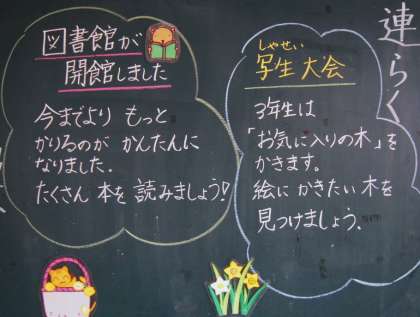 連らく
図書館が
開館しました
今までより もっと
かりるのが かんたんに
なりました.
たくさん 本を 読みましょう!
しゃせい
写生大会
3年生は
「お気に入りの木」を
かきます。
絵に かきたい 木を
見つけましょう.